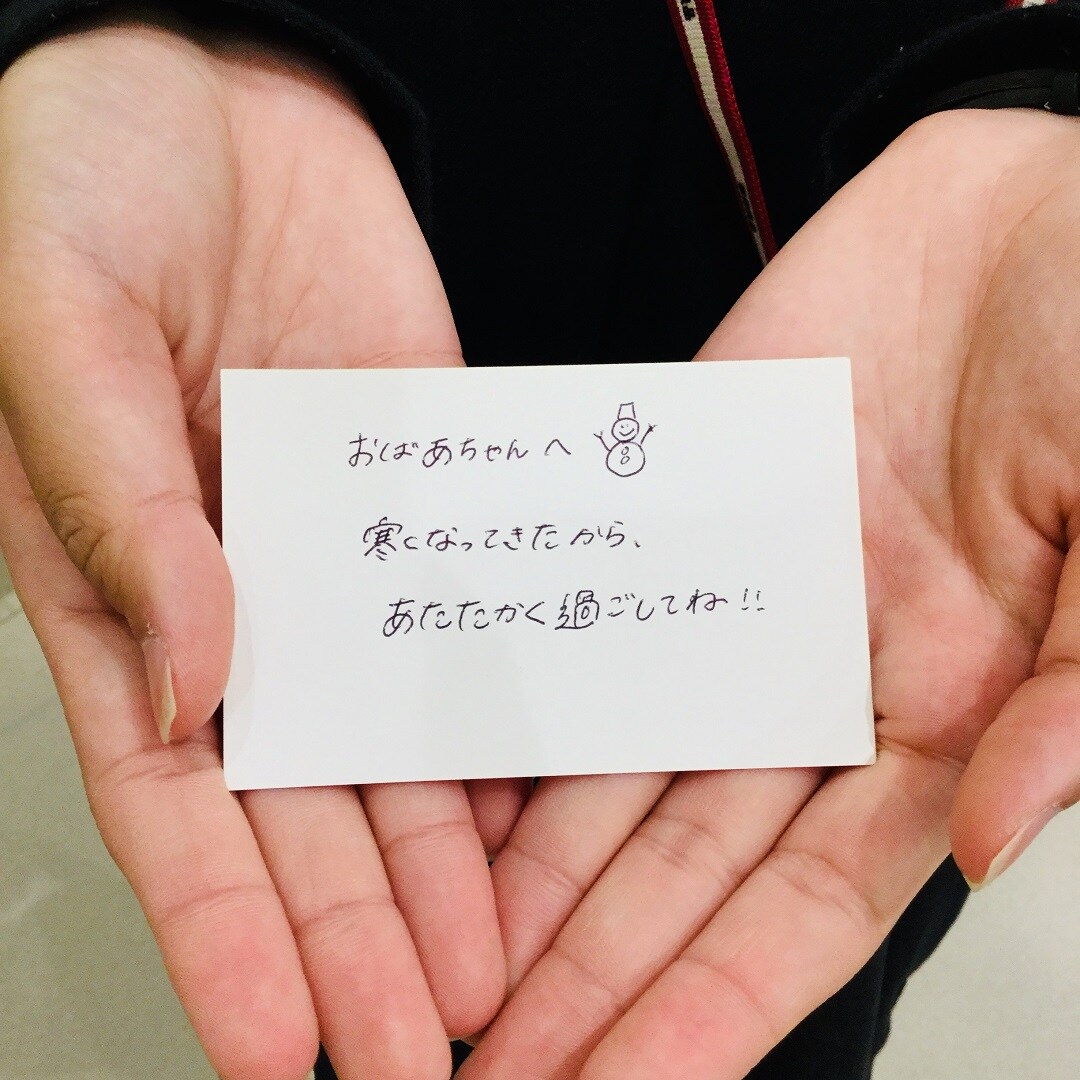 おばあちゃんへ
寒くなってきたから、
あたたかく過ごしてね!!